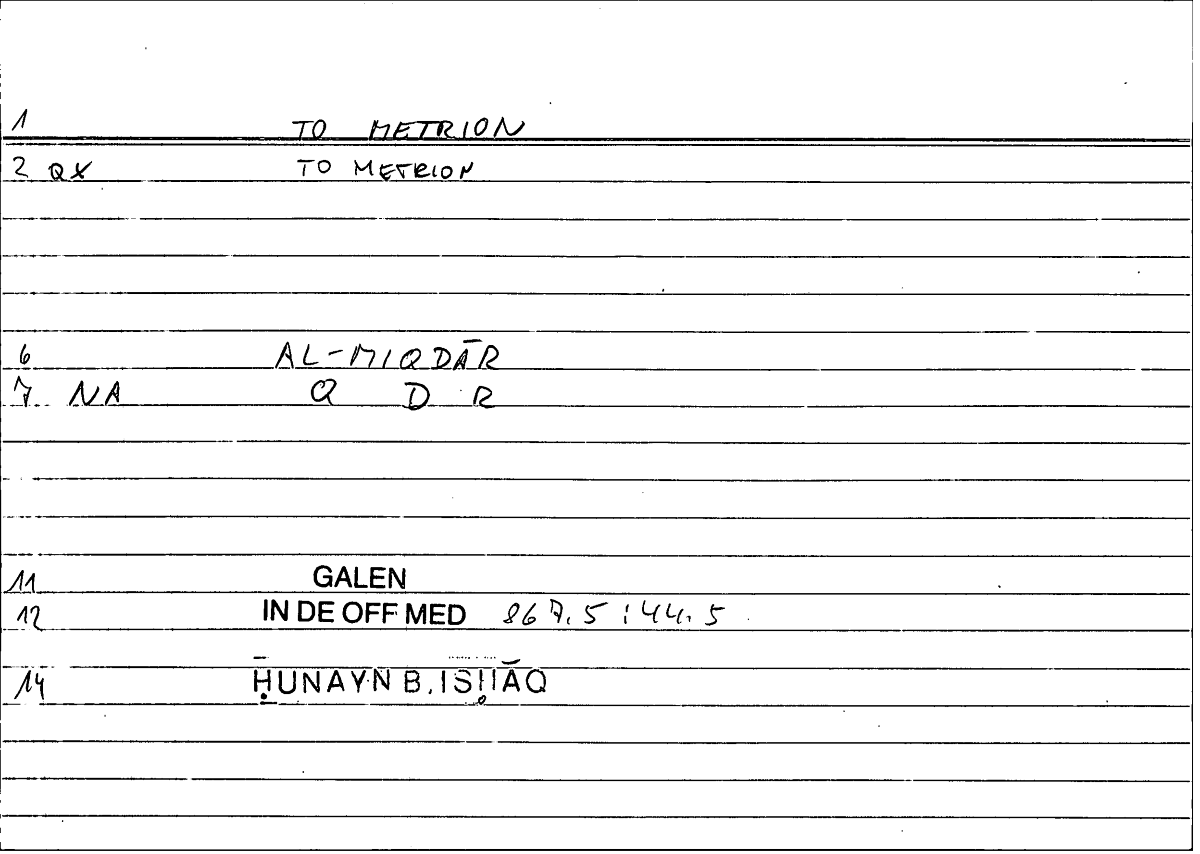 1 TO METRION
2 QX TO METRION
6 AL-MIQDĀR
7 NA Q D R
11 GALEN
12 IN DE OFF MED 867.5 : 44.5
14 ḤUNAYN B. ISḤĀQ